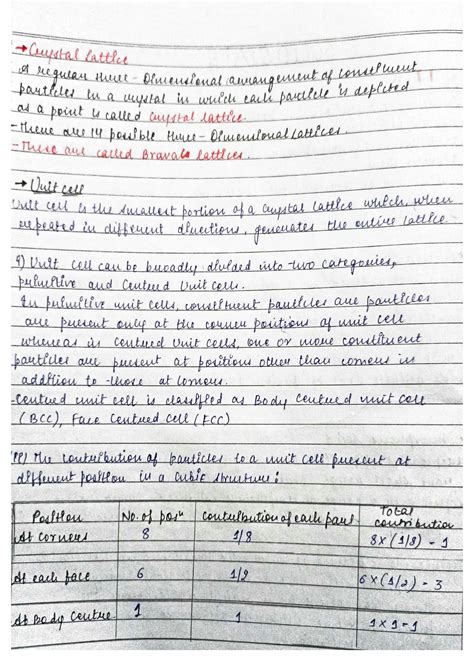 → Crystal Lattice
A regular three-Dimensional arrangement of constituent
particles in a crystal in which each particle is depicted
as a point is called crystal lattice.
- There are 14 possible three-Dimensional Lattices.
- These are called Bravais lattices.
→ Unit cell
Unit cell is the smallest portion of a crystal lattice which, when
repeated in different directions, generates the entire lattice.
i) Unit cell can be broadly divided into two categories,
primitive and Centred Unit cells.
In primitive unit cells, constituent particles are particles
are present only at the corner positions of unit cell
whereas in Centred Unit cells, one or more constituent
particles are present at positions other than corners in
addition to those at corners.
- Centred unit cell is classified as Body Centred unit cell
(BCC), Face Centred Cell (FCC)
ii) The contribution of particles to a unit cell present at
different position in a cubic structure:
Position No. of posn contribution of each part Total contribution
At corners 8 1/8 8x(1/8) - 1
At each face 6 1/2 6x(1/2) - 3
At Body Centre 1 1 1x1 - 1